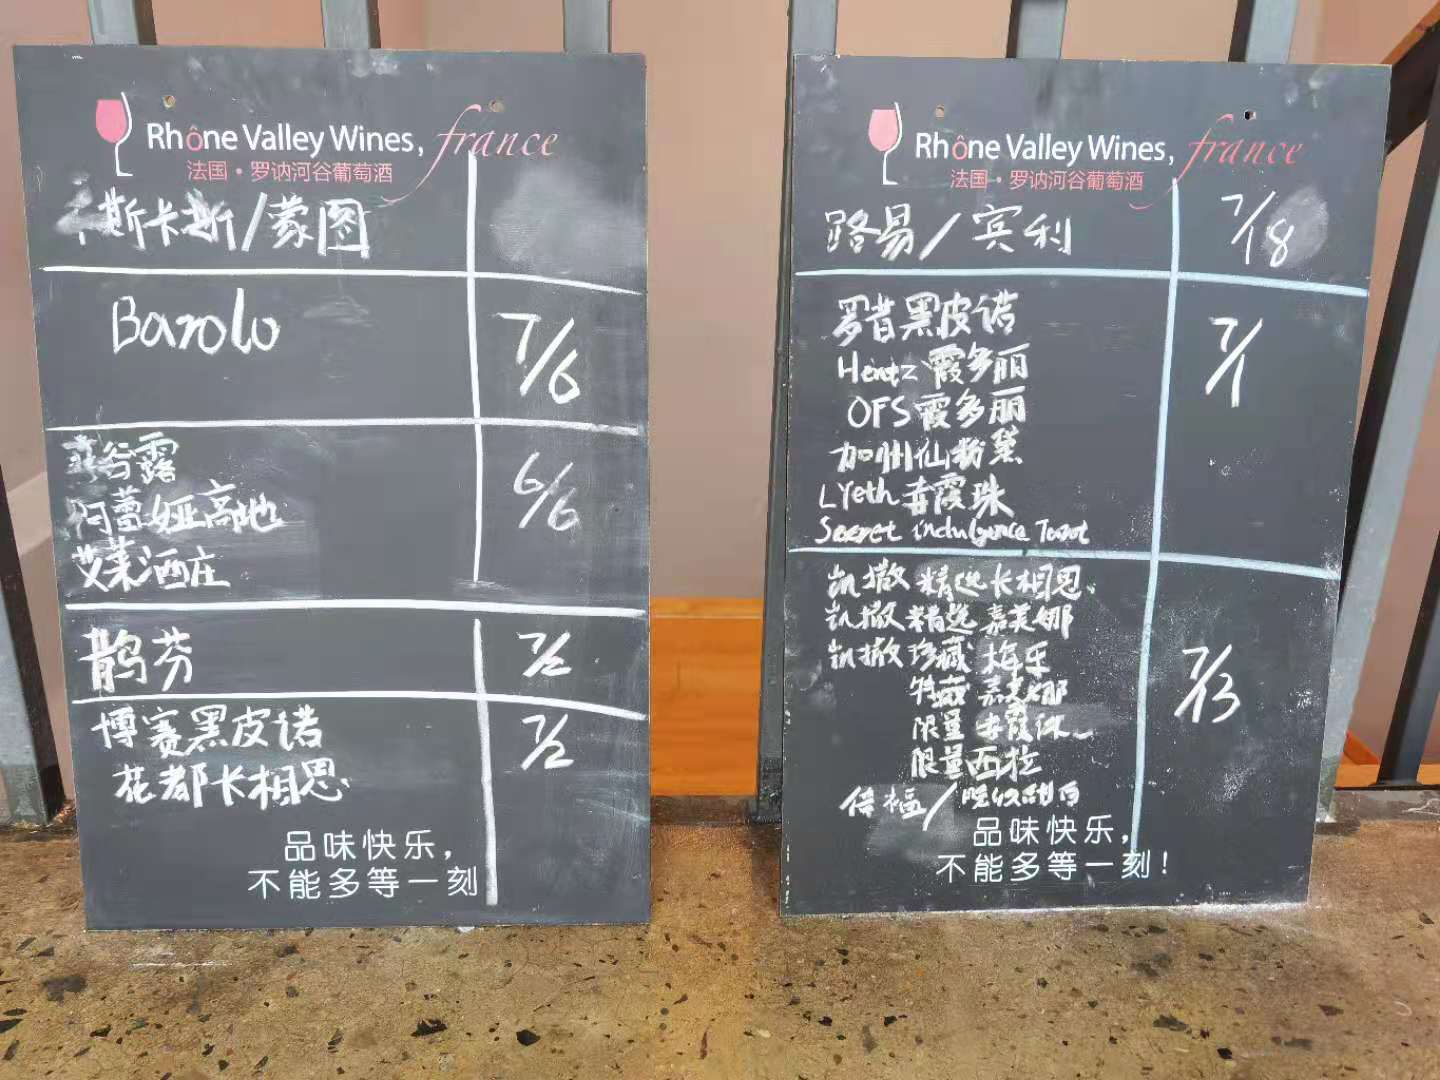 Rhône Valley Wines, france
法国·罗讷河谷葡萄酒
斯卡斯/蒙图
Barolo
7/6
谷露
阿蕾娅高地
艾莱酒庄
6/6
鹊芬
7/2
博赛黑皮诺
花都长相思
7/2
品味快乐,
不能多等一刻
Rhône Valley Wines, france
法国·罗讷河谷葡萄酒
路易/宾利
7/18
罗昔黑皮诺
Hentz霞多丽
OFS霞多丽
加州仙粉黛
LYeth赤霞珠
Secret indulgence
7/1
凯撒精选长相思
凯撒精选嘉美娜
凯撒珍藏梅乐
特藏嘉美娜
限量赤霞珠
限量西拉
7/13
品味快乐,
不能多等一刻!